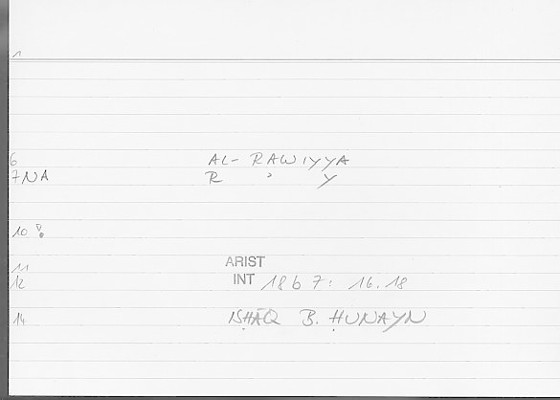 1
6 AL- RAWIYYA
7 NA R ʾ Y
10
11 ARIST
12 INT 18 b 7: 16.18
14 ISḤĀQ B. ḤUNAYN